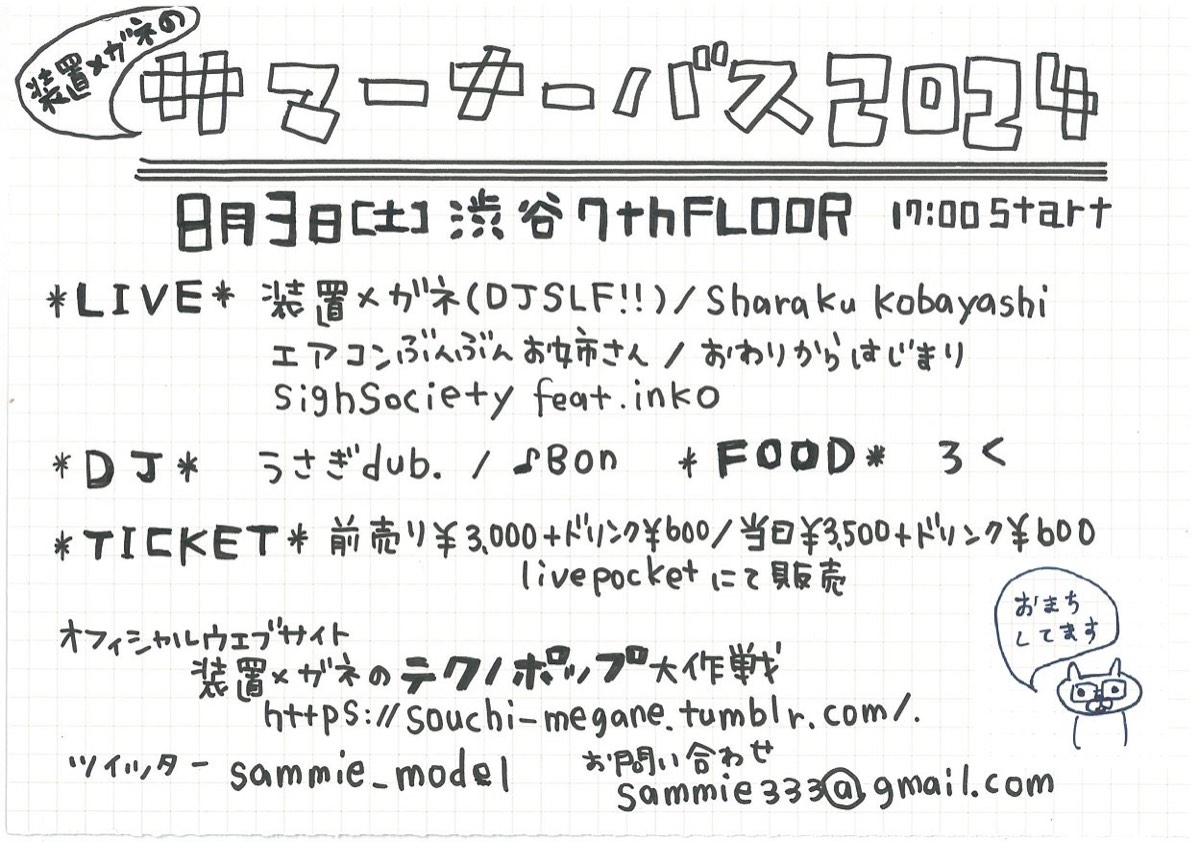 装置メガネの
サマーナーバス2024
8月3日[土] 渋谷7thFLOOR 17:00 Start
*LIVE* 装置メガネ(DJSLF!!)/Sharaku Kobayashi
エアコンぶんぶんお姉さん/おわりからはじまり
SighSociety feat.inko
*DJ* うさぎdub. / ♪Bon *FOOD* ろく
*TICKET* 前売り¥3,000+ドリンク¥600/当日¥3,500+ドリンク¥600
livepocketにて販売
おまち
してます
オフィシャルウェブサイト
装置メガネのテクノポップ大作戦
https://souchi-megane.tumblr.com/.
ツイッター sammie_model
お問い合わせ
sammie333@gmail.com